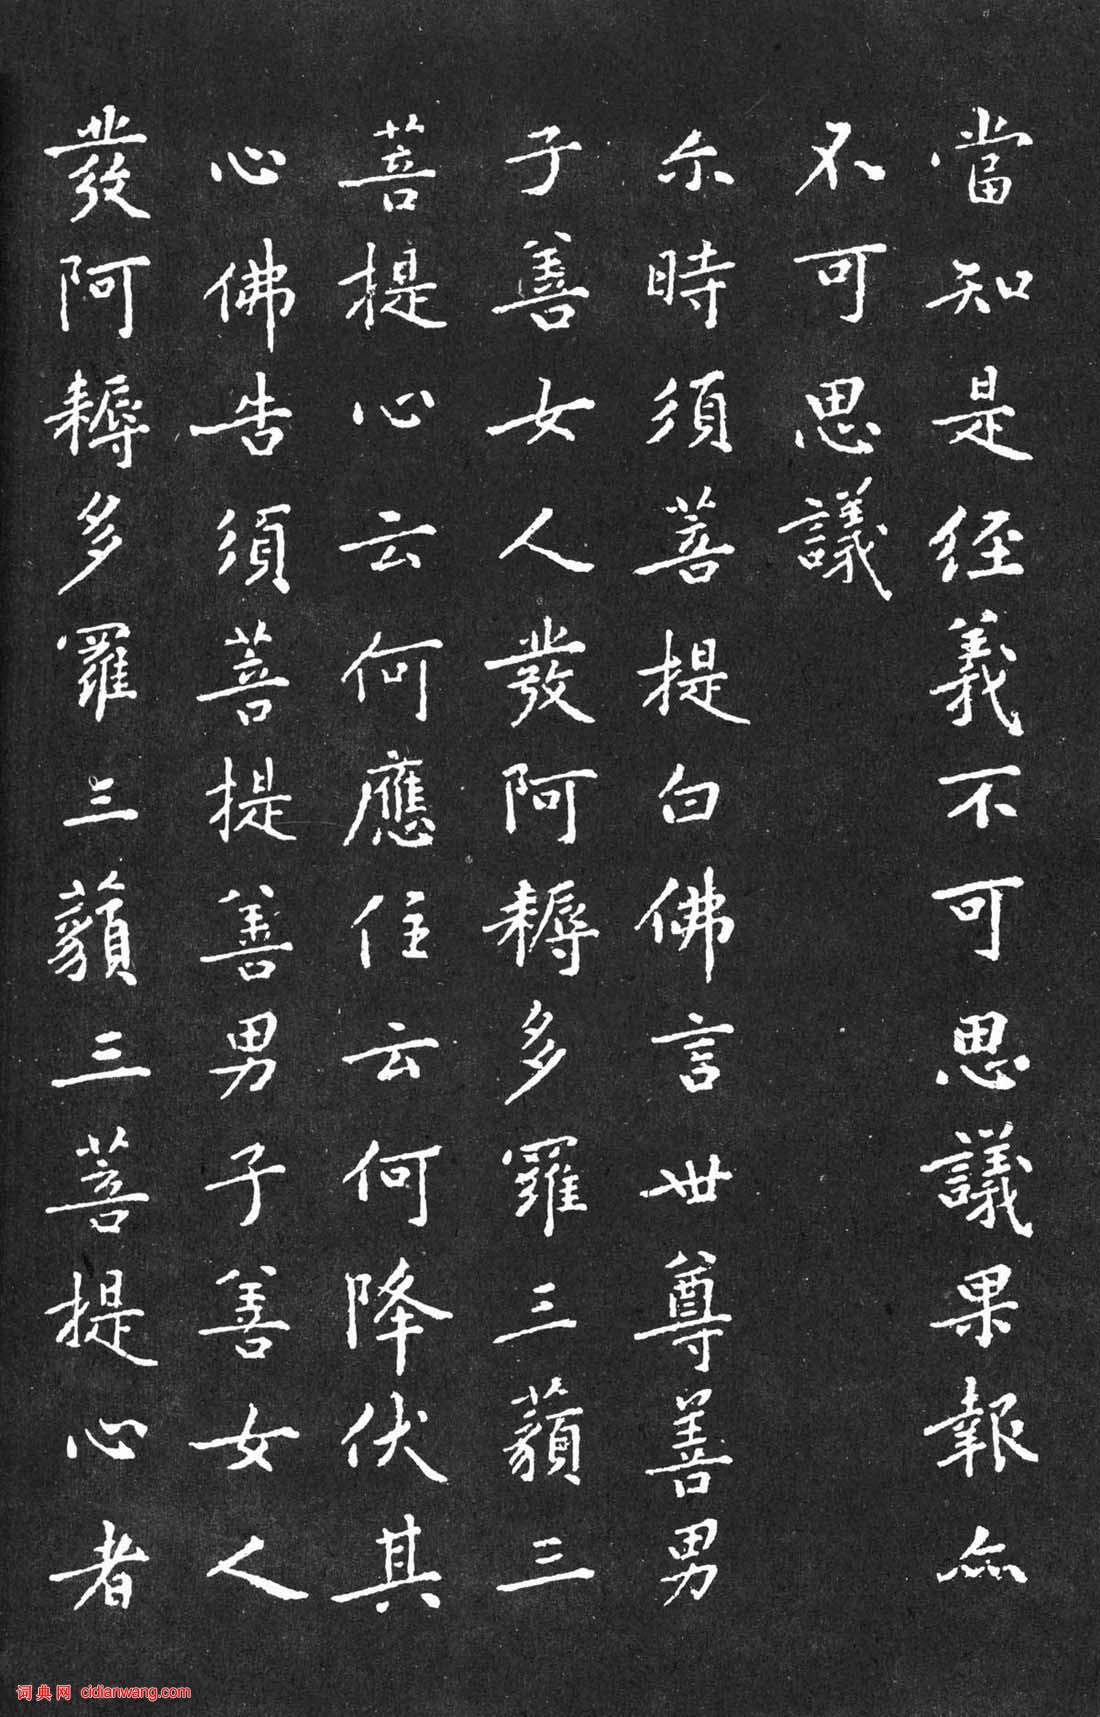 當知是經義不可思議果報亦
不可思議
尒時須菩提白佛言世尊善男
子善女人發阿耨多羅三藐三
菩提心云何應住云何降伏其
心佛告須菩提善男子善女人
發阿耨多羅三藐三菩提心者
词典网 cidianwang.com